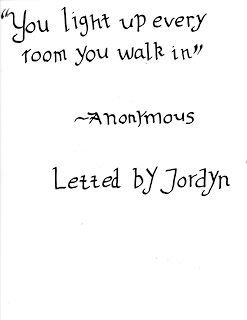 “You light up every
room you walk in”
~Anonymous
Letted by Jordyn